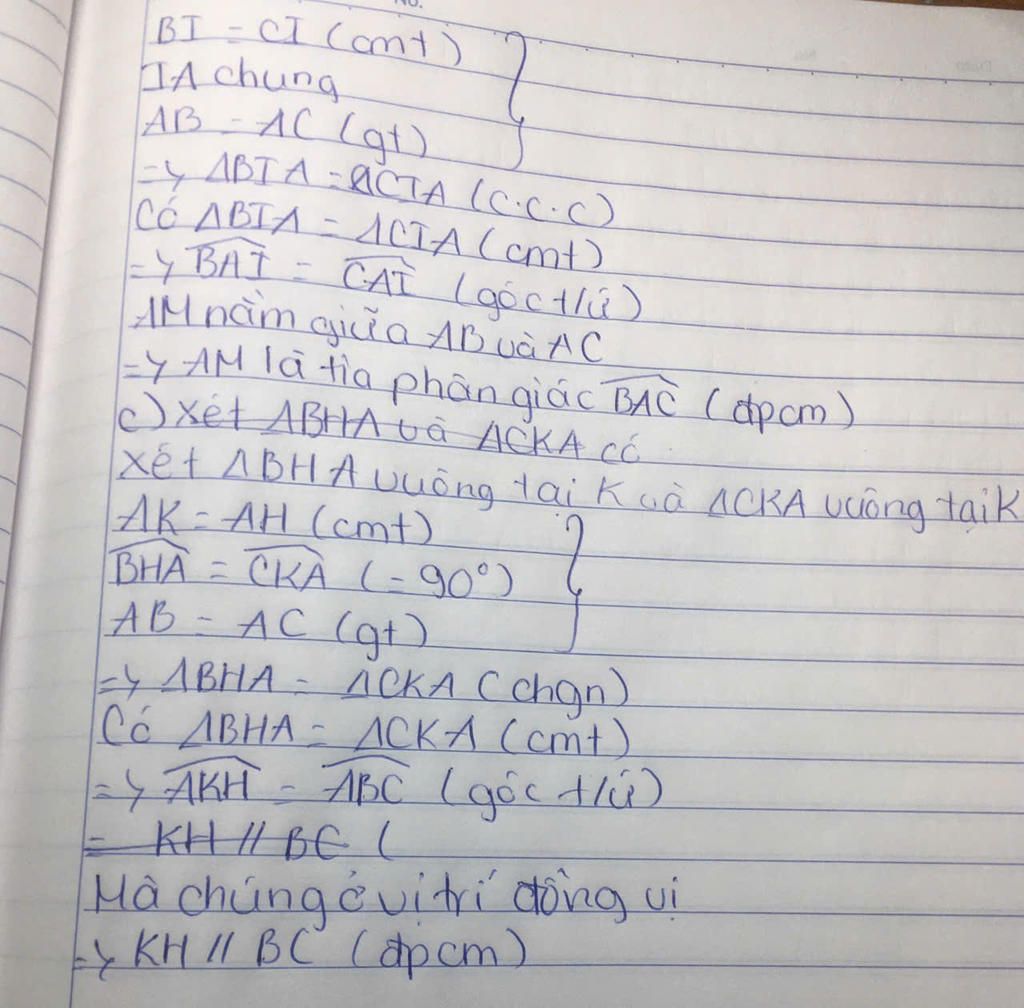 BI = CI (cmt)
IA chung
AB = AC (gt)
=> ΔBIA = ΔCIA (c.c.c)
Có ΔBIA = ΔCIA (cmt)
=> \widehat{BAI} = \widehat{CAI} (góc t/ứ)
AM nằm giữa AB và AC
=> AM là tia phân giác \widehat{BAC} (đpcm)
c) Xét ΔBHA và ΔCKA có
Xét ΔBHA vuông tại K và ΔCKA vuông tại K
AK = AH (cmt)
\widehat{BHA} = \widehat{CKA} (= 90°)
AB = AC (gt)
=> ΔBHA = ΔCKA (chgn)
Có ΔBHA = ΔCKA (cmt)
=> \widehat{AKH} = \widehat{ABC} (góc t/ứ)
= KH // BC (
Mà chúng ở vị trí đồng vị
=> KH // BC (đpcm)